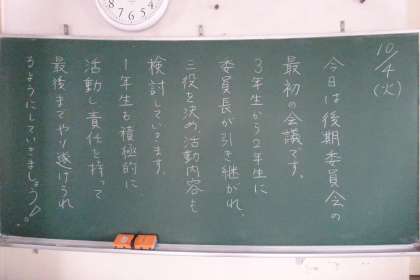 10/4(火)
今日は後期委員会の
最初の会議です。
3年生から2年生に
委員長が引き継がれ、
三役を決め、活動内容も
検討していきます。
1年生も積極的に
活動し、責任を持って
最後までやり遂げられ
るようにしていきましょう!。